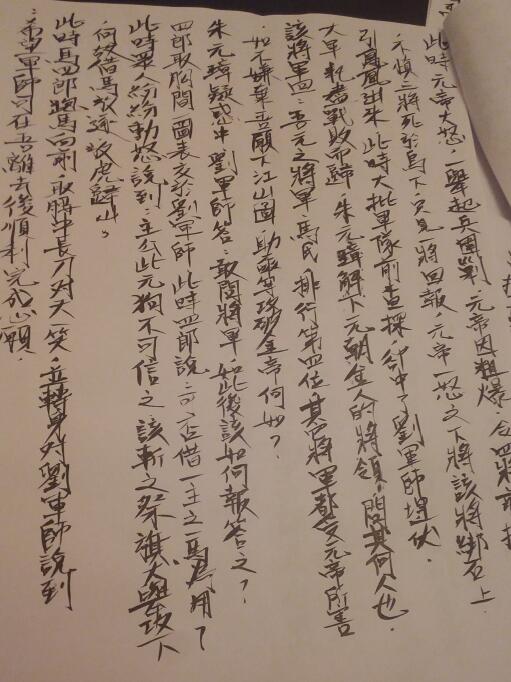 此時元帝大怒.一舉起兵圍剿.元帝因粗爆.令四將前
不慎三將死於馬下只見將回報.元帝一怒之下將該將綁石上
引鳳凰出來此時大批軍隊前查探.卻中了劉軍師埋伏.
大軍耗盡戰敗而歸.朱元璋解下元朝金人的將領.問其何人也.
該將軍四:吾元之將軍.馬氏排行第四位其將軍都受元帝所害
如不嫌棄吾願下江山圖.助攻破金帝何如?
朱元璋疑惑中劉軍師答:敢問將軍如此後該如何報答之?
四郎取胸間圖表交於劉軍師此時四郎說:可否借一主之一馬為用了
此時眾人紛紛動怒說到:主公此元狗不可信之該斬之祭旗大舉攻下
何須借馬放逐放虎歸山.
此時馬四郎跑馬向前.取將中長刀对大笑.並轉身对劉軍師說到
:希望軍師可在吾離去後順利完成心願.